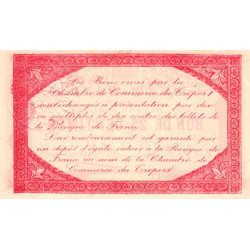 Les Bons émis par la
Chambre de Commerce du Tréport
sont échangés à présentation par des
multiples de
contre des billets de
la Banque de France.
Leur remboursement est garanti par
un dépôt d'égale valeur à la Banque de
France au nom de la Chambre de
Commerce du Tréport